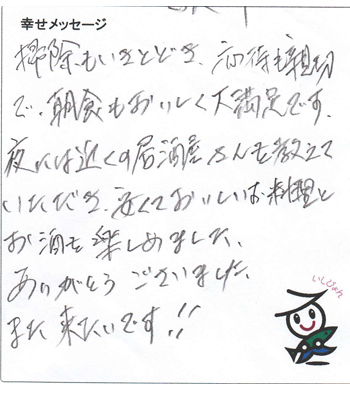 幸せメッセージ
掃除もいきとどき、応待も親切
で、朝食もおいしく大満足です。
夜には近くの居酒屋さんも教えて
いただき、安くておいしいお料理と
お酒も楽しめました。
ありがとうございました。
また来たいです!!
いしぴょん